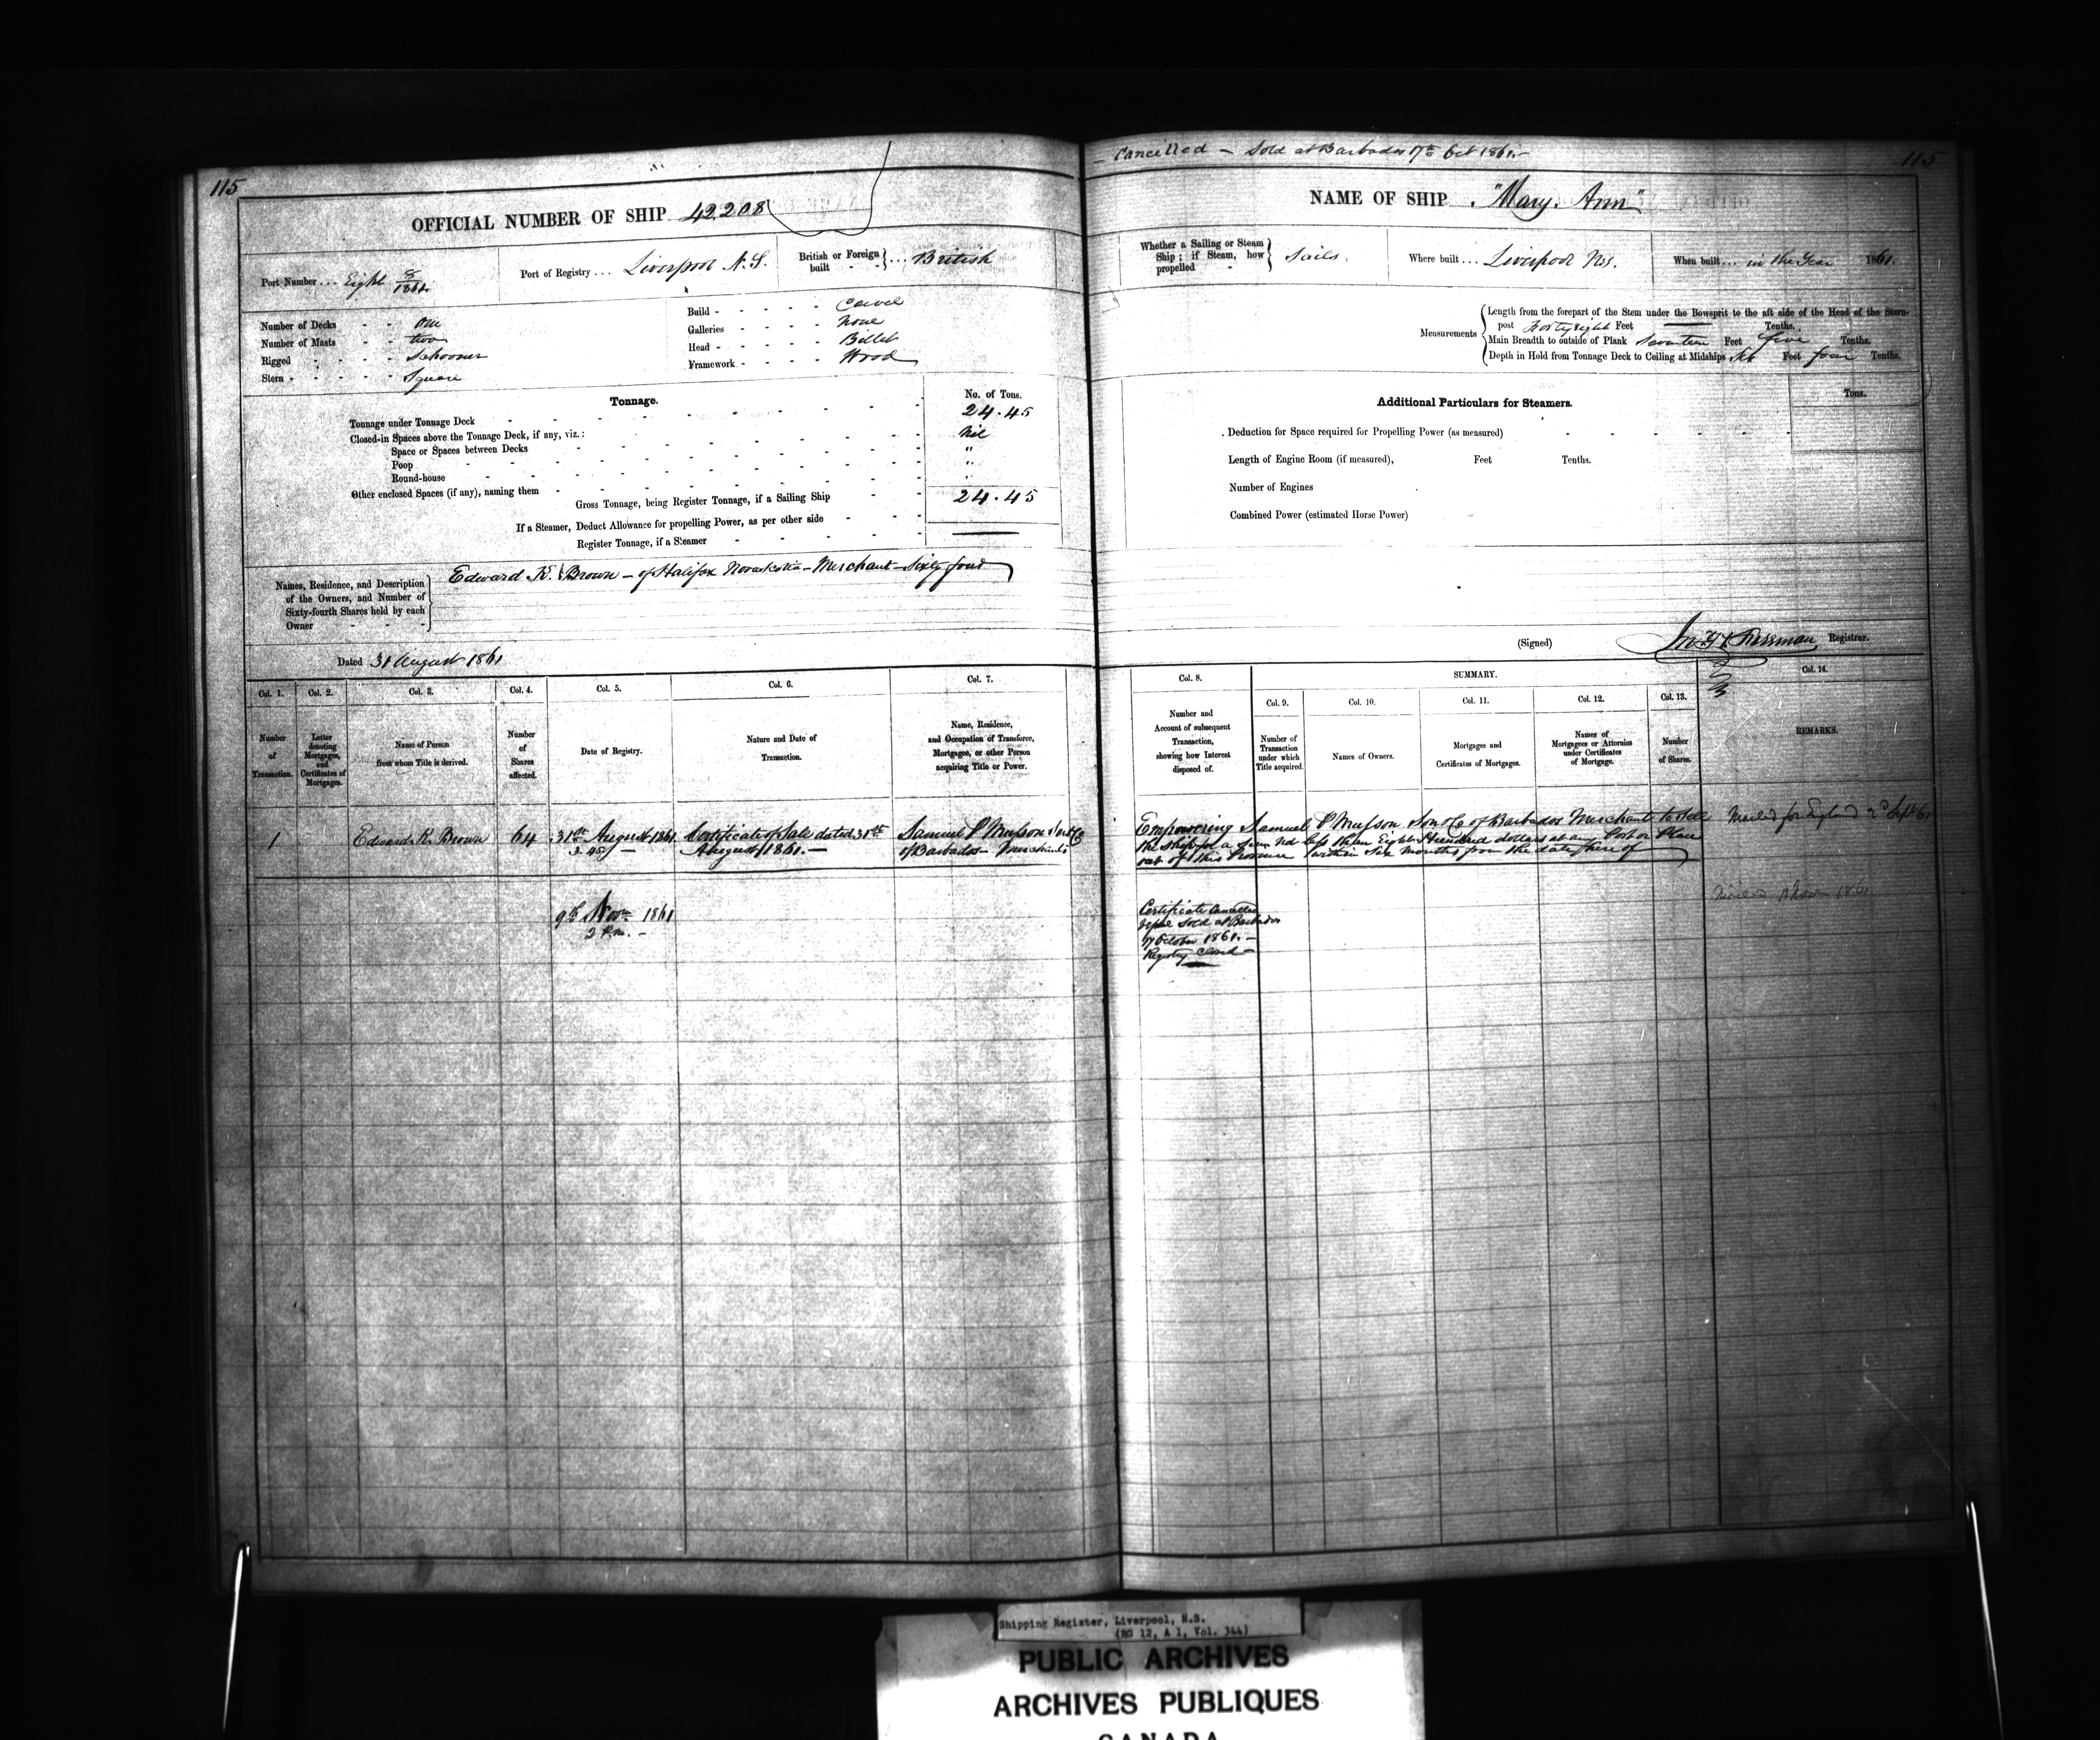 115
OFFICIAL NUMBER OF SHIP 42208
Port Number ... Eight 8/1861
Port of Registry ... Liverpool N.S.
British or Foreign built } ... British
Number of Decks - - One
Number of Masts - - two
Rigged - - - - Schooner
Stern - - - - - Square
Build - - - - - Carvel
Galleries - - - - None
Head - - - - - Billet
Framework - - - - Wood
Tonnage.
No. of Tons.
Tonnage under Tonnage Deck 24.45
Closed-in Spaces above the Tonnage Deck, if any, viz.: Nil
Space or Spaces between Decks "
Poop "
Round-house "
Other enclosed Spaces (if any), naming them
Gross Tonnage, being Register Tonnage, if a Sailing Ship 24.45
If a Steamer, Deduct Allowance for propelling Power, as per other side
Register Tonnage, if a Steamer
Names, Residence, and Description
of the Owners, and Number of
Sixty-fourth Shares held by each
Owner
Edward K. Brown - of Halifax Nova Scotia - Merchant - Sixty four
Dated 31 August 1861
Col. 1. Col. 2. Col. 3. Col. 4. Col. 5. Col. 6. Col. 7.
Number of Transaction.
Letter denoting Mortgages, and Certificates of Mortgages.
Name of Person from whom Title is derived.
Number of Shares affected.
Date of Registry.
Nature and Date of Transaction.
Name, Residence, and Occupation of Transferee, Mortgagee, or other Person acquiring Title or Power.
1
Edward K. Brown
64
31st August 1861
3.45
Certificate of Sale dated 31st
August 1861. -
Samuel P Musson Son & Co
of Barbados - Merchants
9th Novr 1861
2 P.m. -
- Cancelled - Sold at Barbados 17th Oct 1861. -
115
NAME OF SHIP "Mary Ann"
Whether a Sailing or Steam
Ship; if Steam, how
propelled
Sails.
Where built ... Liverpool N.S.
When built ... in the Year 1861.
Measurements
Length from the forepart of the Stem under the Bowsprit to the aft side of the Head of the Stern-
post Forty eight Feet Tenths.
Main Breadth to outside of Plank Seventeen Feet five Tenths.
Depth in Hold from Tonnage Deck to Ceiling at Midships Six Feet four Tenths.
Additional Particulars for Steamers.
Tons.
Deduction for Space required for Propelling Power (as measured)
Length of Engine Room (if measured), Feet Tenths.
Number of Engines
Combined Power (estimated Horse Power)
(Signed) Registrar.
Col. 8. SUMMARY. Col. 14.
Col. 9. Col. 10. Col. 11. Col. 12. Col. 13.
Number and Account of subsequent Transaction, showing how Interest disposed of.
Number of Transaction under which Title acquired.
Names of Owners.
Mortgages and Certificates of Mortgages.
Names of Mortgagees or Attornies under Certificates of Mortgage.
Number of Shares.
REMARKS.
Empowering Samuel P Musson Son & Co of Barbados Merchants to sell
the Ship for a Sum not less than Eighteen Hundred dollars at any Port or Place
out of this Province within Six Months from the date hereof
Mailed for England 2d Sept 61
Certificate Cancelled
Sold at Barbados
17 October 1861. -
Registry Closed -
1861
Shipping Register, Liverpool, N.S.
(RG 12, A 1, Vol. 344)
PUBLIC ARCHIVES
ARCHIVES PUBLIQUES
CANADA